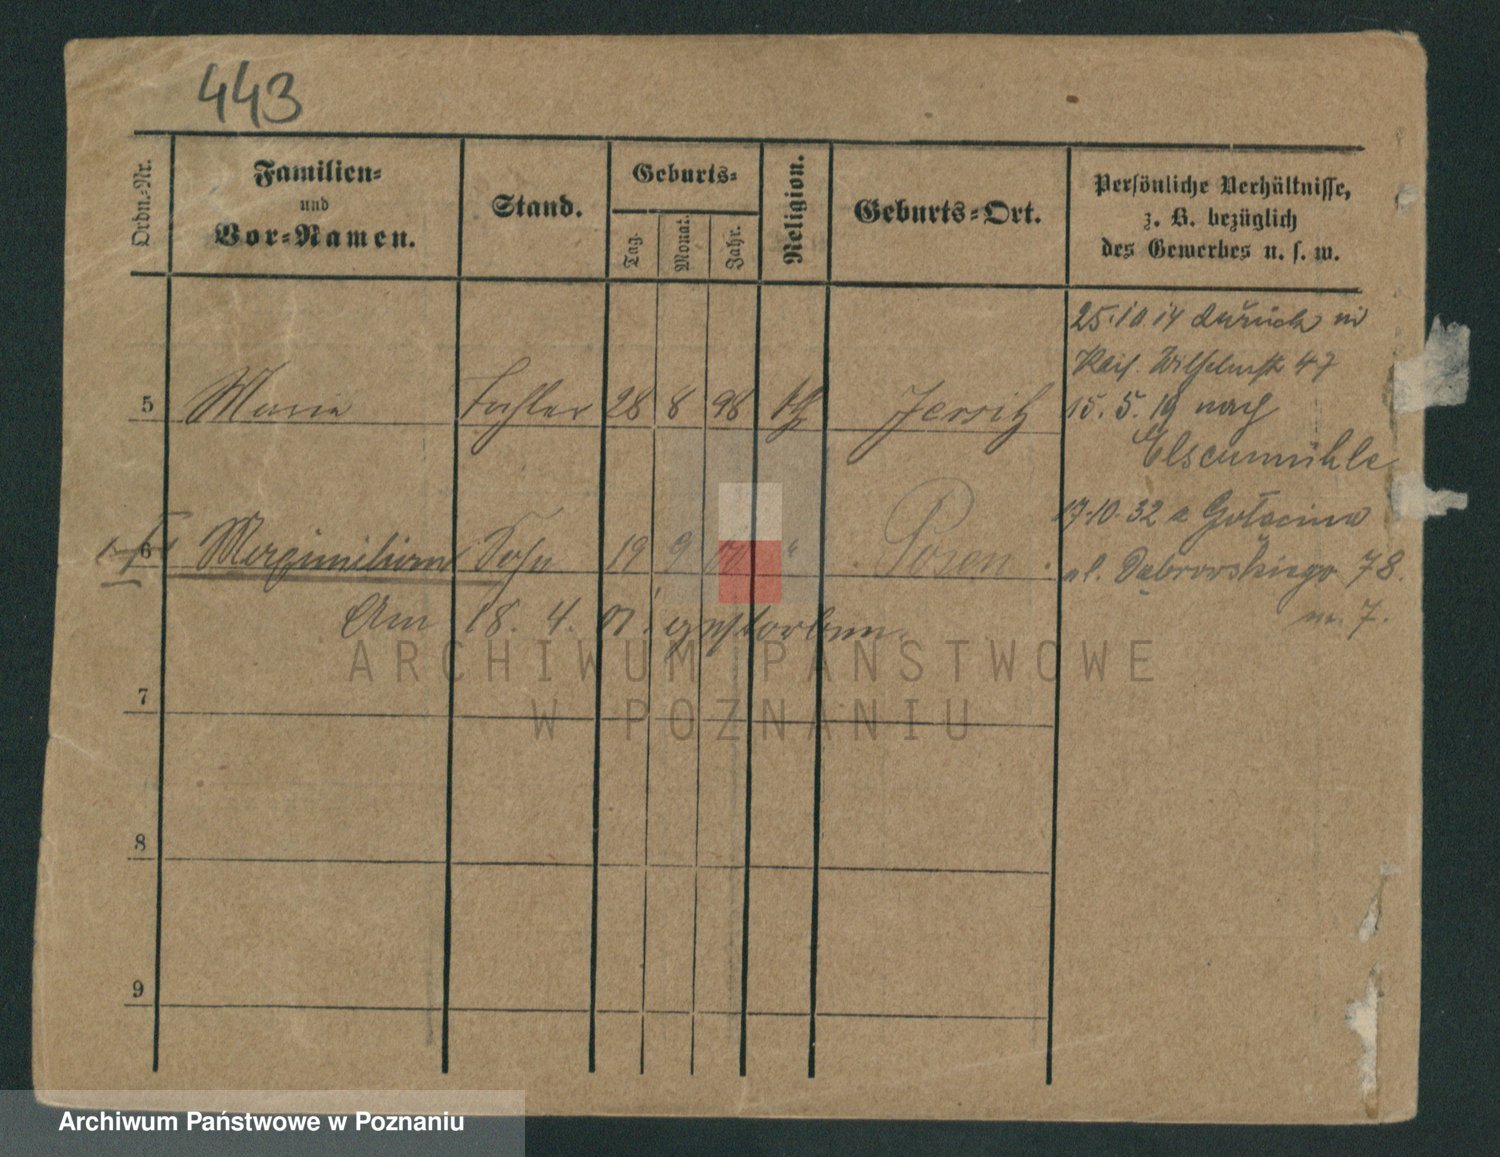 443
Ordn.-Nr.
Familien-
und
Vor-Namen.
Stand.
Geburts-
Tag.
Monat.
Jahr.
Religion.
Geburts-Ort.
Persönliche Verhältnisse,
z. B. bezüglich
des Gewerbes u. s. w.
25.10.14 zurück in
Kais. Wilhelmstr 47
5 Maria Tochter 28 8 98 kth Jersitz
15. 5. 19 nach
Elsenmühle
17.10.32 z Gołacina
6 Maximilian Sohn 19 9 00 " Posen
ul. Dąbrowskiego 78.
m. 7.
Am 18. 4. 01. gestorben.
7
8
9
ARCHIWUM PAŃSTWOWE
W POZNANIU
Archiwum Państwowe w Poznaniu